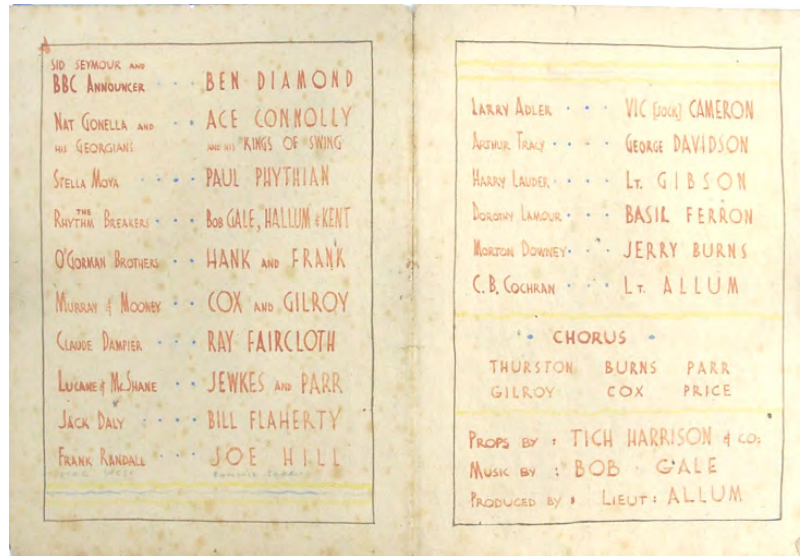 SID SEYMOUR AND
BBC ANNOUNCER · · · BEN DIAMOND
NAT GONELLA AND · · ACE CONNOLLY
HIS GEORGIANS AND HIS KINGS OF SWING
STELLA MOYA · · · · PAUL PHYTHIAN
THE RHYTHM BREAKERS · · BOB GALE, HALLUM & KENT
O'GORMAN BROTHERS · · HANK AND FRANK
MURRAY & MOONEY · · COX AND GILROY
CLAUDE DAMPIER · · · RAY FAIRCLOTH
LUCANE & McSHANE · · JEWKES AND PARR
JACK DALY · · · · BILL FLAHERTY
FRANK RANDALL · · · JOE HILL
LARRY ADLER · · · VIC [JOCK] CAMERON
ARTHUR TRACY · · · GEORGE DAVIDSON
HARRY LAUDER · · · LT. GIBSON
DOROTHY LAMOUR · · · BASIL FERRON
MORTON DOWNEY · · · JERRY BURNS
C.B. COCHRAN · · · LT. ALLUM
· CHORUS ·
THURSTON BURNS PARR
GILROY COX PRICE
PROPS BY : TICH HARRISON & CO:
MUSIC BY : BOB GALE
PRODUCED BY : LIEUT: ALLUM